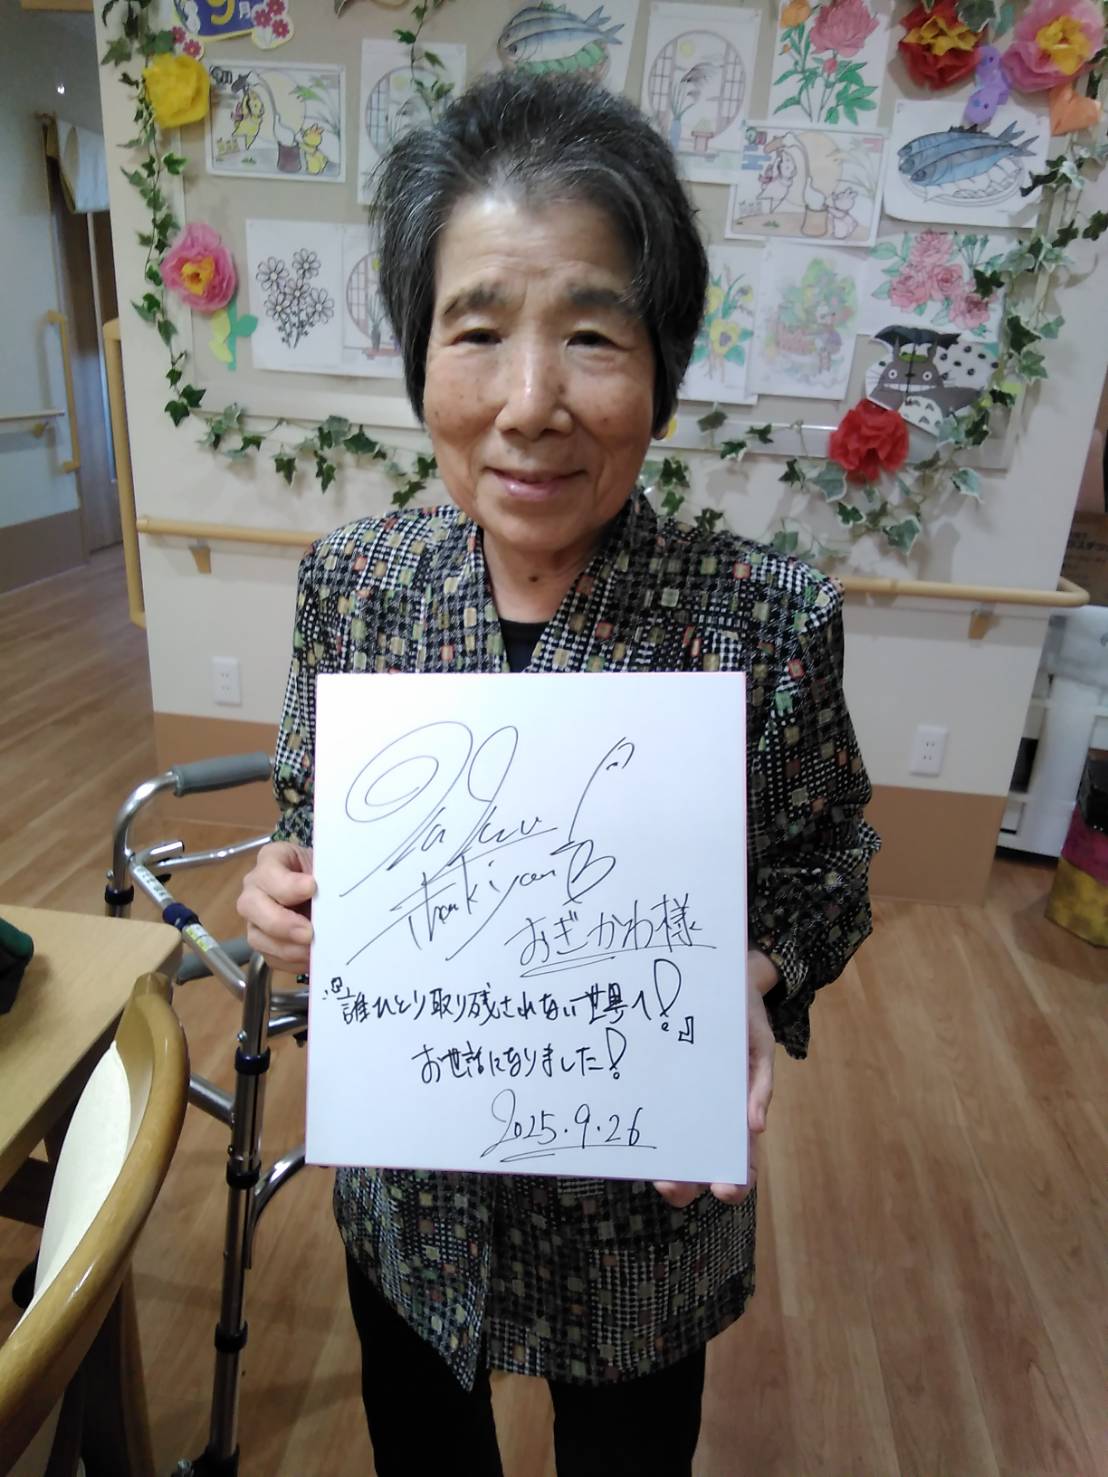 9月
Thank you
おぎかわ様
『誰ひとり取り残されない世界へ!』
お世話になりました!
2025.9.26